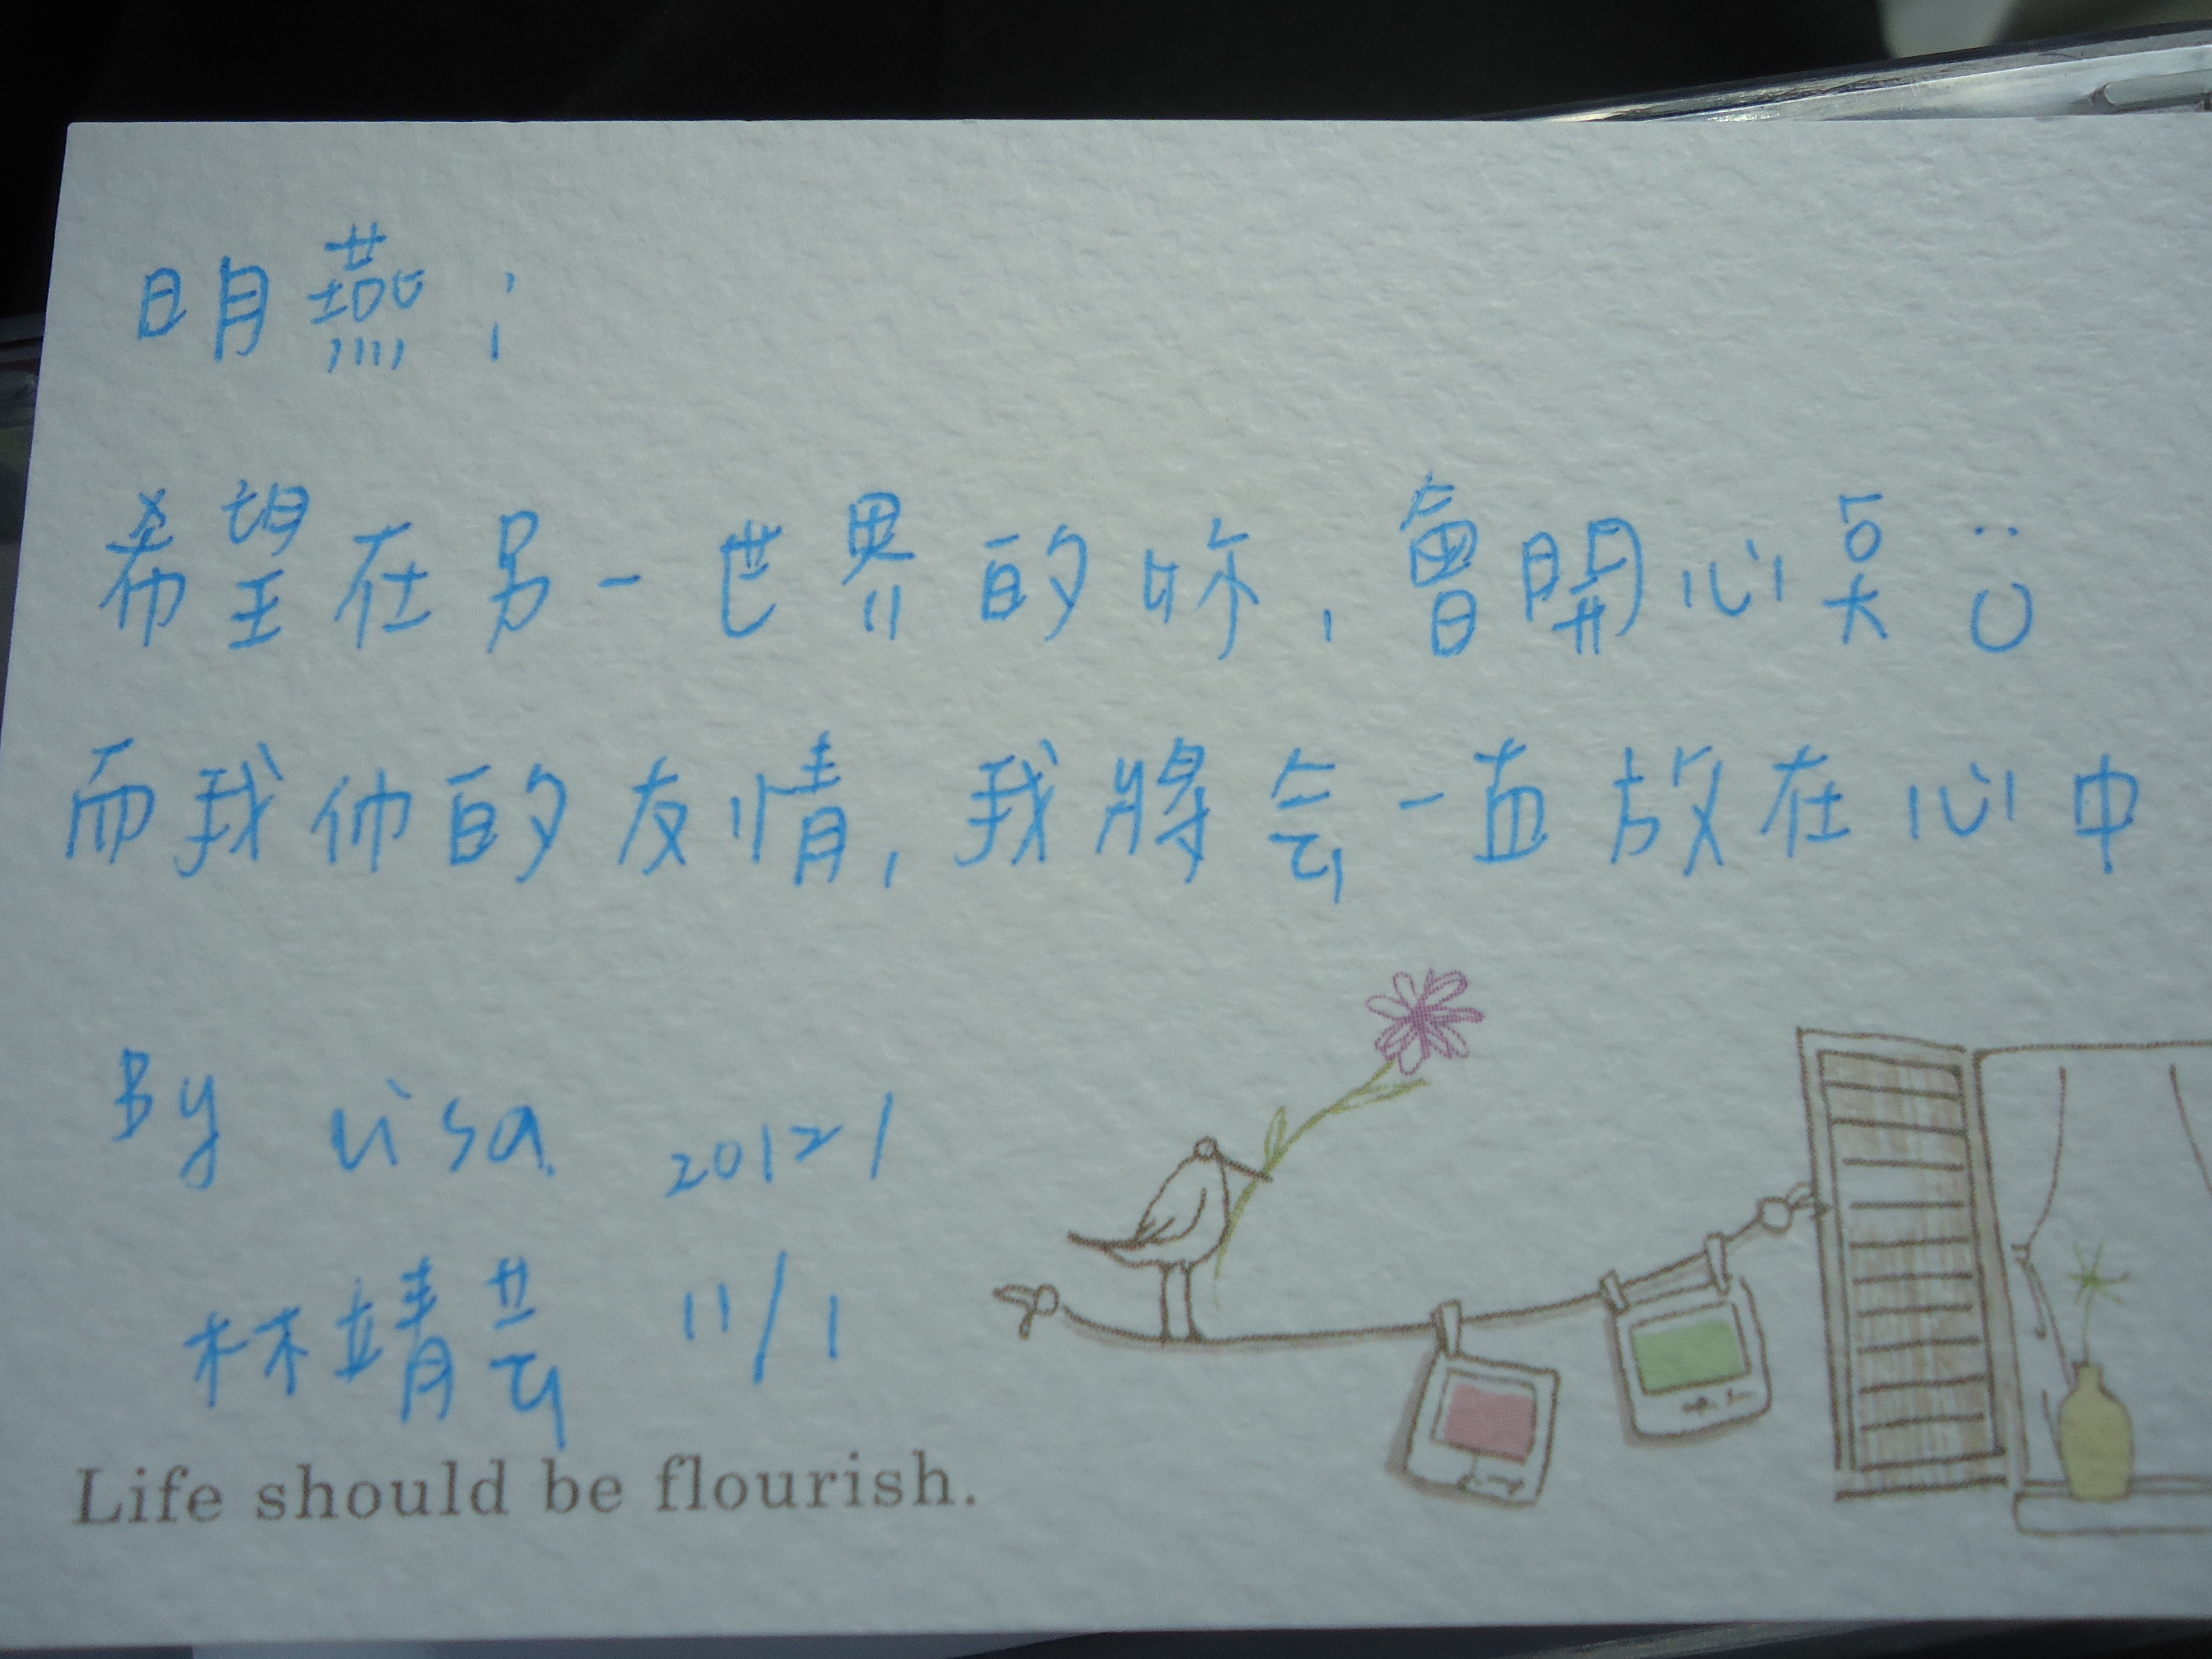 明燕:
希望在另一世界的妳,會開心哭
而我们的友情,我將会一直放在心中
By Lisa 2012/
林靖芸 11/1
Life should be flourish.